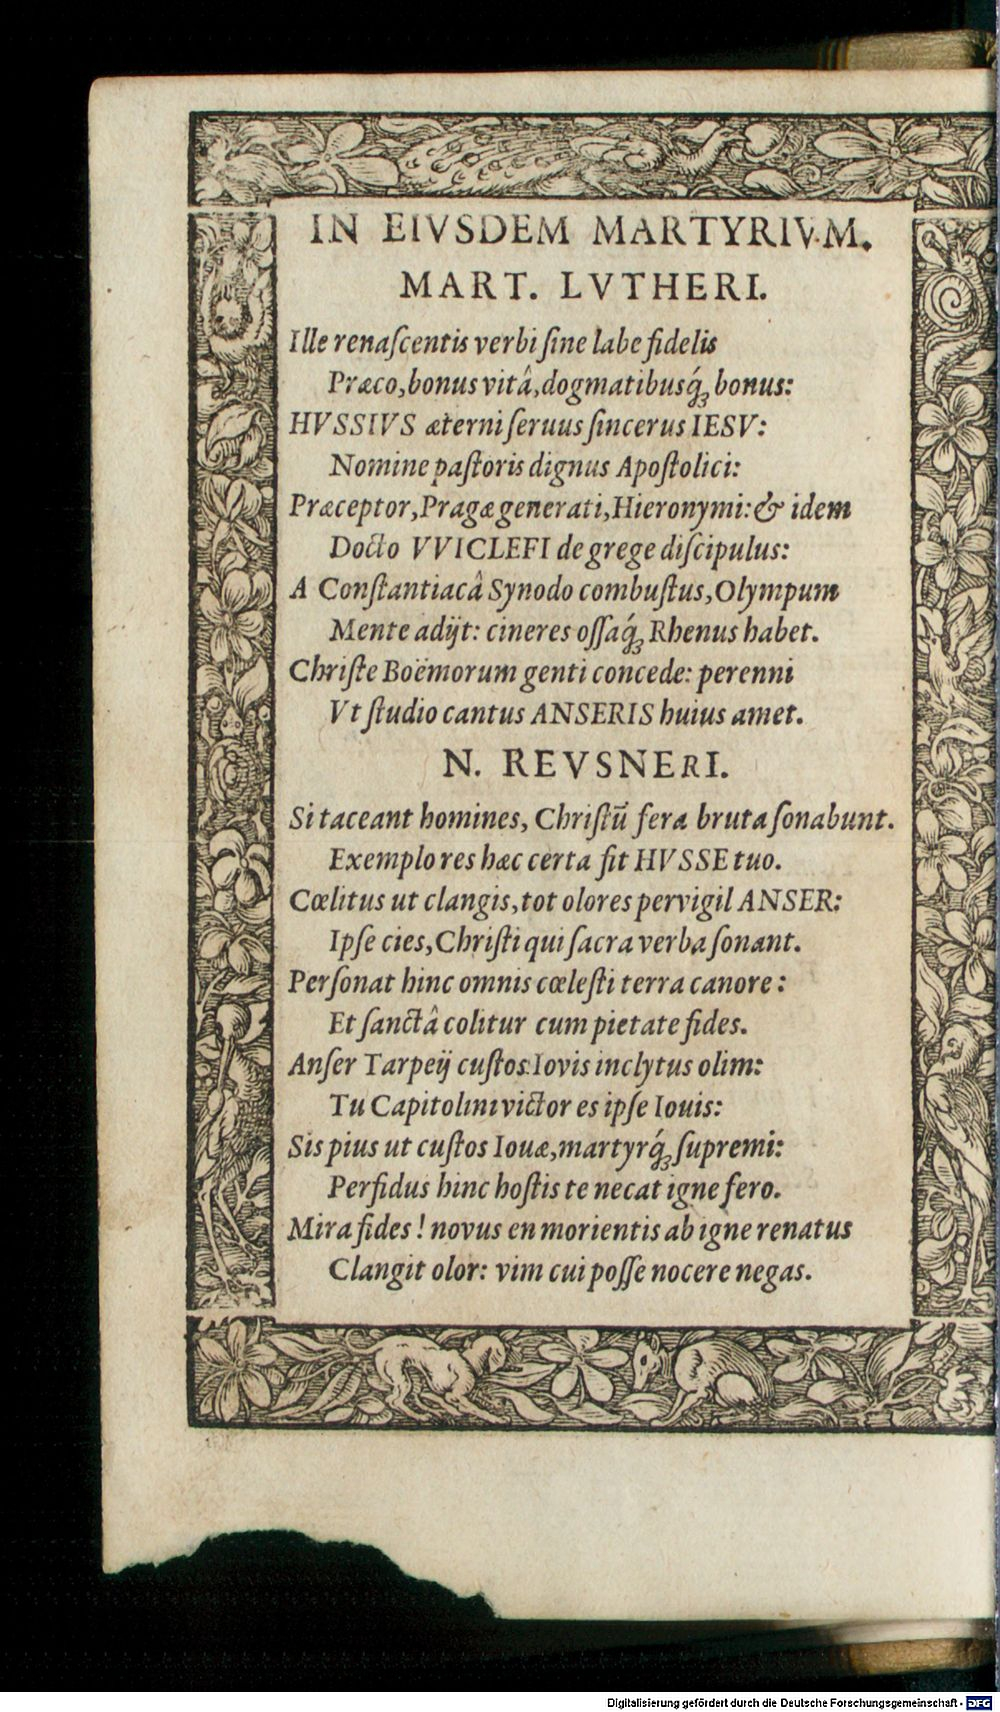 IN EIVSDEM MARTYRIVM.
MART. LVTHERI.
Ille renaſcentis verbi ſine labe fidelis
Præco, bonus vitâ, dogmatibusq́ꝫ bonus:
HVSSIVS æterni ſeruus ſincerus IESV:
Nomine paſtoris dignus Apoſtolici:
Præceptor, Pragæ generati, Hieronymi: & idem
Docto VVICLEFI de grege diſcipulus:
A Conſtantiacâ Synodo combuſtus, Olympum
Mente adijt: cineres oſſaq́ꝫ Rhenus habet.
Chriſte Boëmorum genti concede: perenni
Vt ſtudio cantus ANSERIS huius amet.
N. REVSNERI.
Si taceant homines, Chriſtū fera bruta ſonabunt.
Exemplo res hæc certa ſit HVSSE tuo.
Cœlitus ut clangis, tot olores pervigil ANSER:
Ipſe cies, Chriſti qui ſacra verba ſonant.
Perſonat hinc omnis cœleſti terra canore:
Et ſanctâ colitur cum pietate fides.
Anſer Tarpeij cuſtos Iovis inclytus olim:
Tu Capitolini victor es ipſe Iouis:
Sis pius ut cuſtos Iouæ, martyrq́ꝫ ſupremi:
Perfidus hinc hoſtis te necat igne fero.
Mira fides! novus en morientis ab igne renatus
Clangit olor: vim cui poſſe nocere negas.
Digitalisierung gefördert durch die Deutsche Forschungsgemeinschaft - DFG